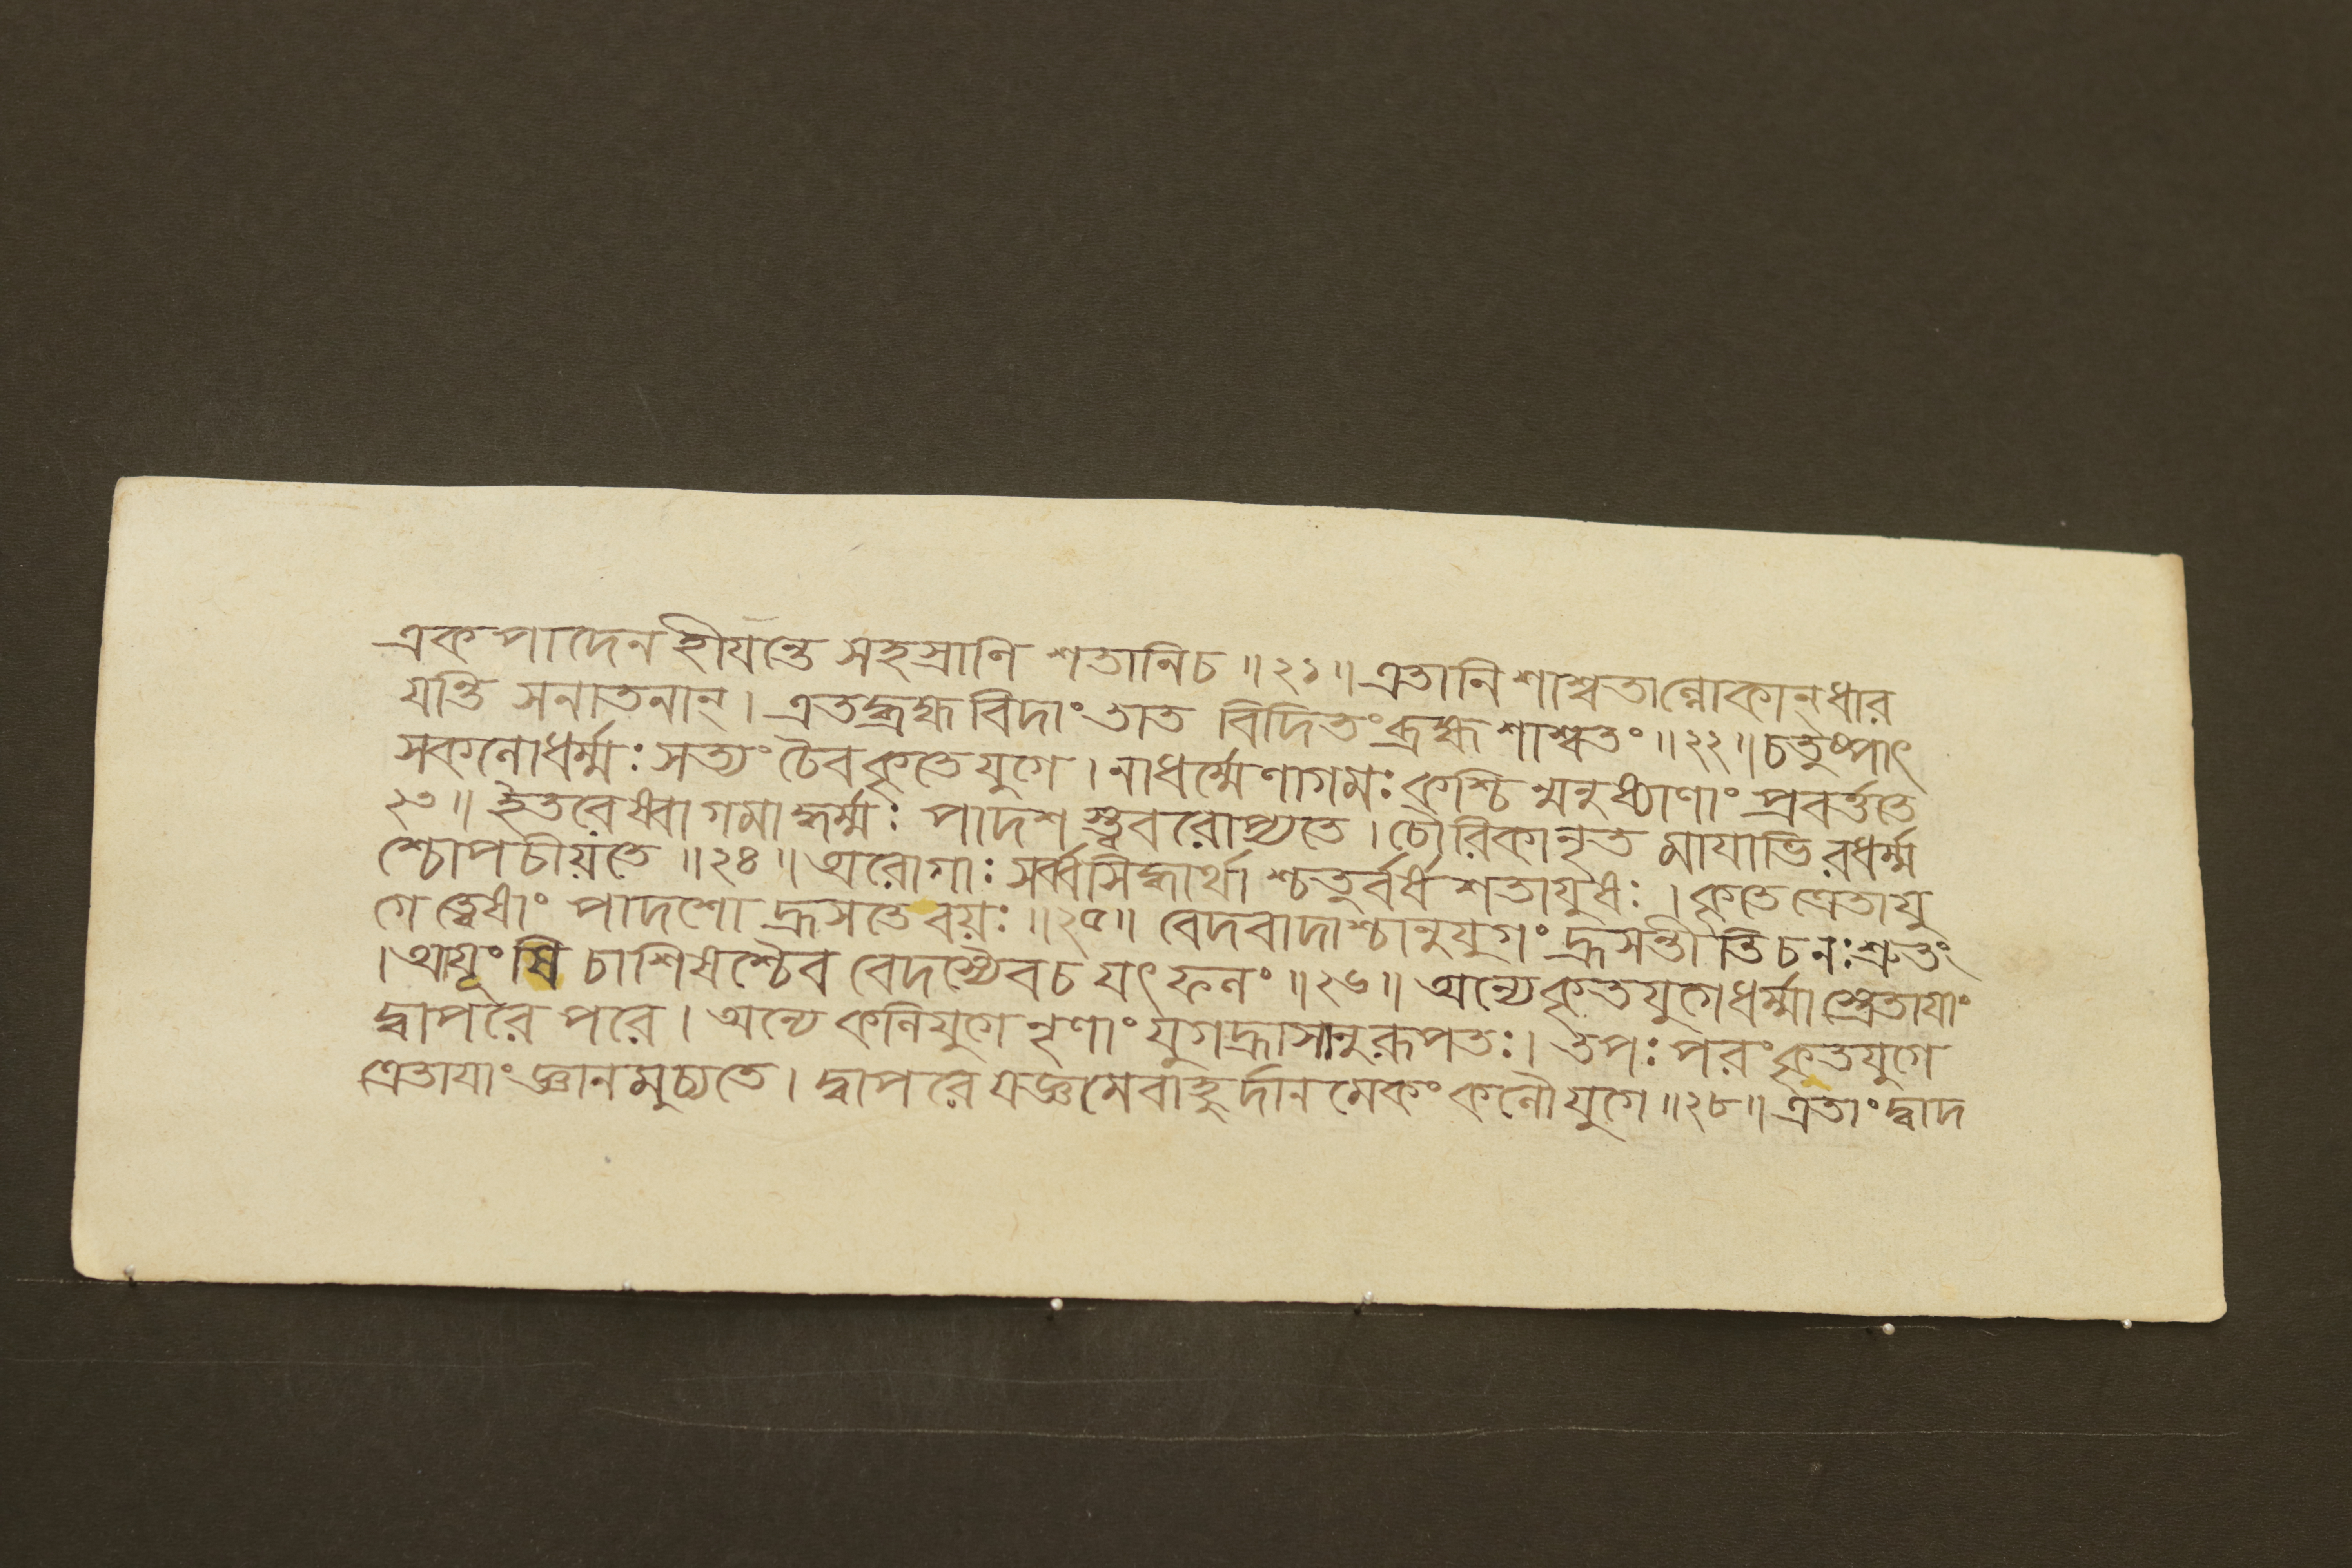 একপাদেন হীযন্তে সহস্রাণি শতানিচ ॥২১॥ এতানি শাশ্বতাল্লোকান্ধার
যন্তি সনাতনান্। এতদ্ব্রহ্মবিদাং তাত বিদিতং ব্রহ্ম শাশ্বতং॥২২॥চতুষ্পাৎ
সকলোধর্ম্মঃ সত্যং চৈব কৃতে যুগে। নাধর্ম্মেণাগমঃ কশ্চিন্মনুষ্যাণাং প্রবর্ত্ততে
২৩॥ ইতরেষ্বাগমাদ্ধর্ম্মঃ পাদশস্ত্ববরোপ্যতে। চৌরিকানৃত মাযাভিরধর্ম্ম
শ্চোপচীয়তে ॥২৪॥ অরোগাঃ সর্ব্বসিদ্ধার্থাশ্চতুর্বর্ষ শতাযুষঃ। কৃতে ত্রেতাযু
গে ত্বেষাং পাদশো হ্রসতে বয়ঃ ॥২৫॥ বেদবাদাশ্চানুযুগং হ্রসন্তীতি চ নঃ শ্রুতং
। আযূংষি চাশিষশ্চৈব বেদস্যৈব চ যৎ ফলং ॥২৬॥ অন্যে কৃতযুগে ধর্ম্মাস্ত্রেতাযাং
দ্বাপরে পরে। অন্যে কলিযুগে নৃণাং যুগহ্রাসানুরূপতঃ। তপঃ পরং কৃতযুগে
ত্রেতাযাং জ্ঞানমুচ্যতে। দ্বাপরে যজ্ঞমেবাহুর্দানমেকং কলৌযুগে ॥২৮॥ এতাং দ্বাদ